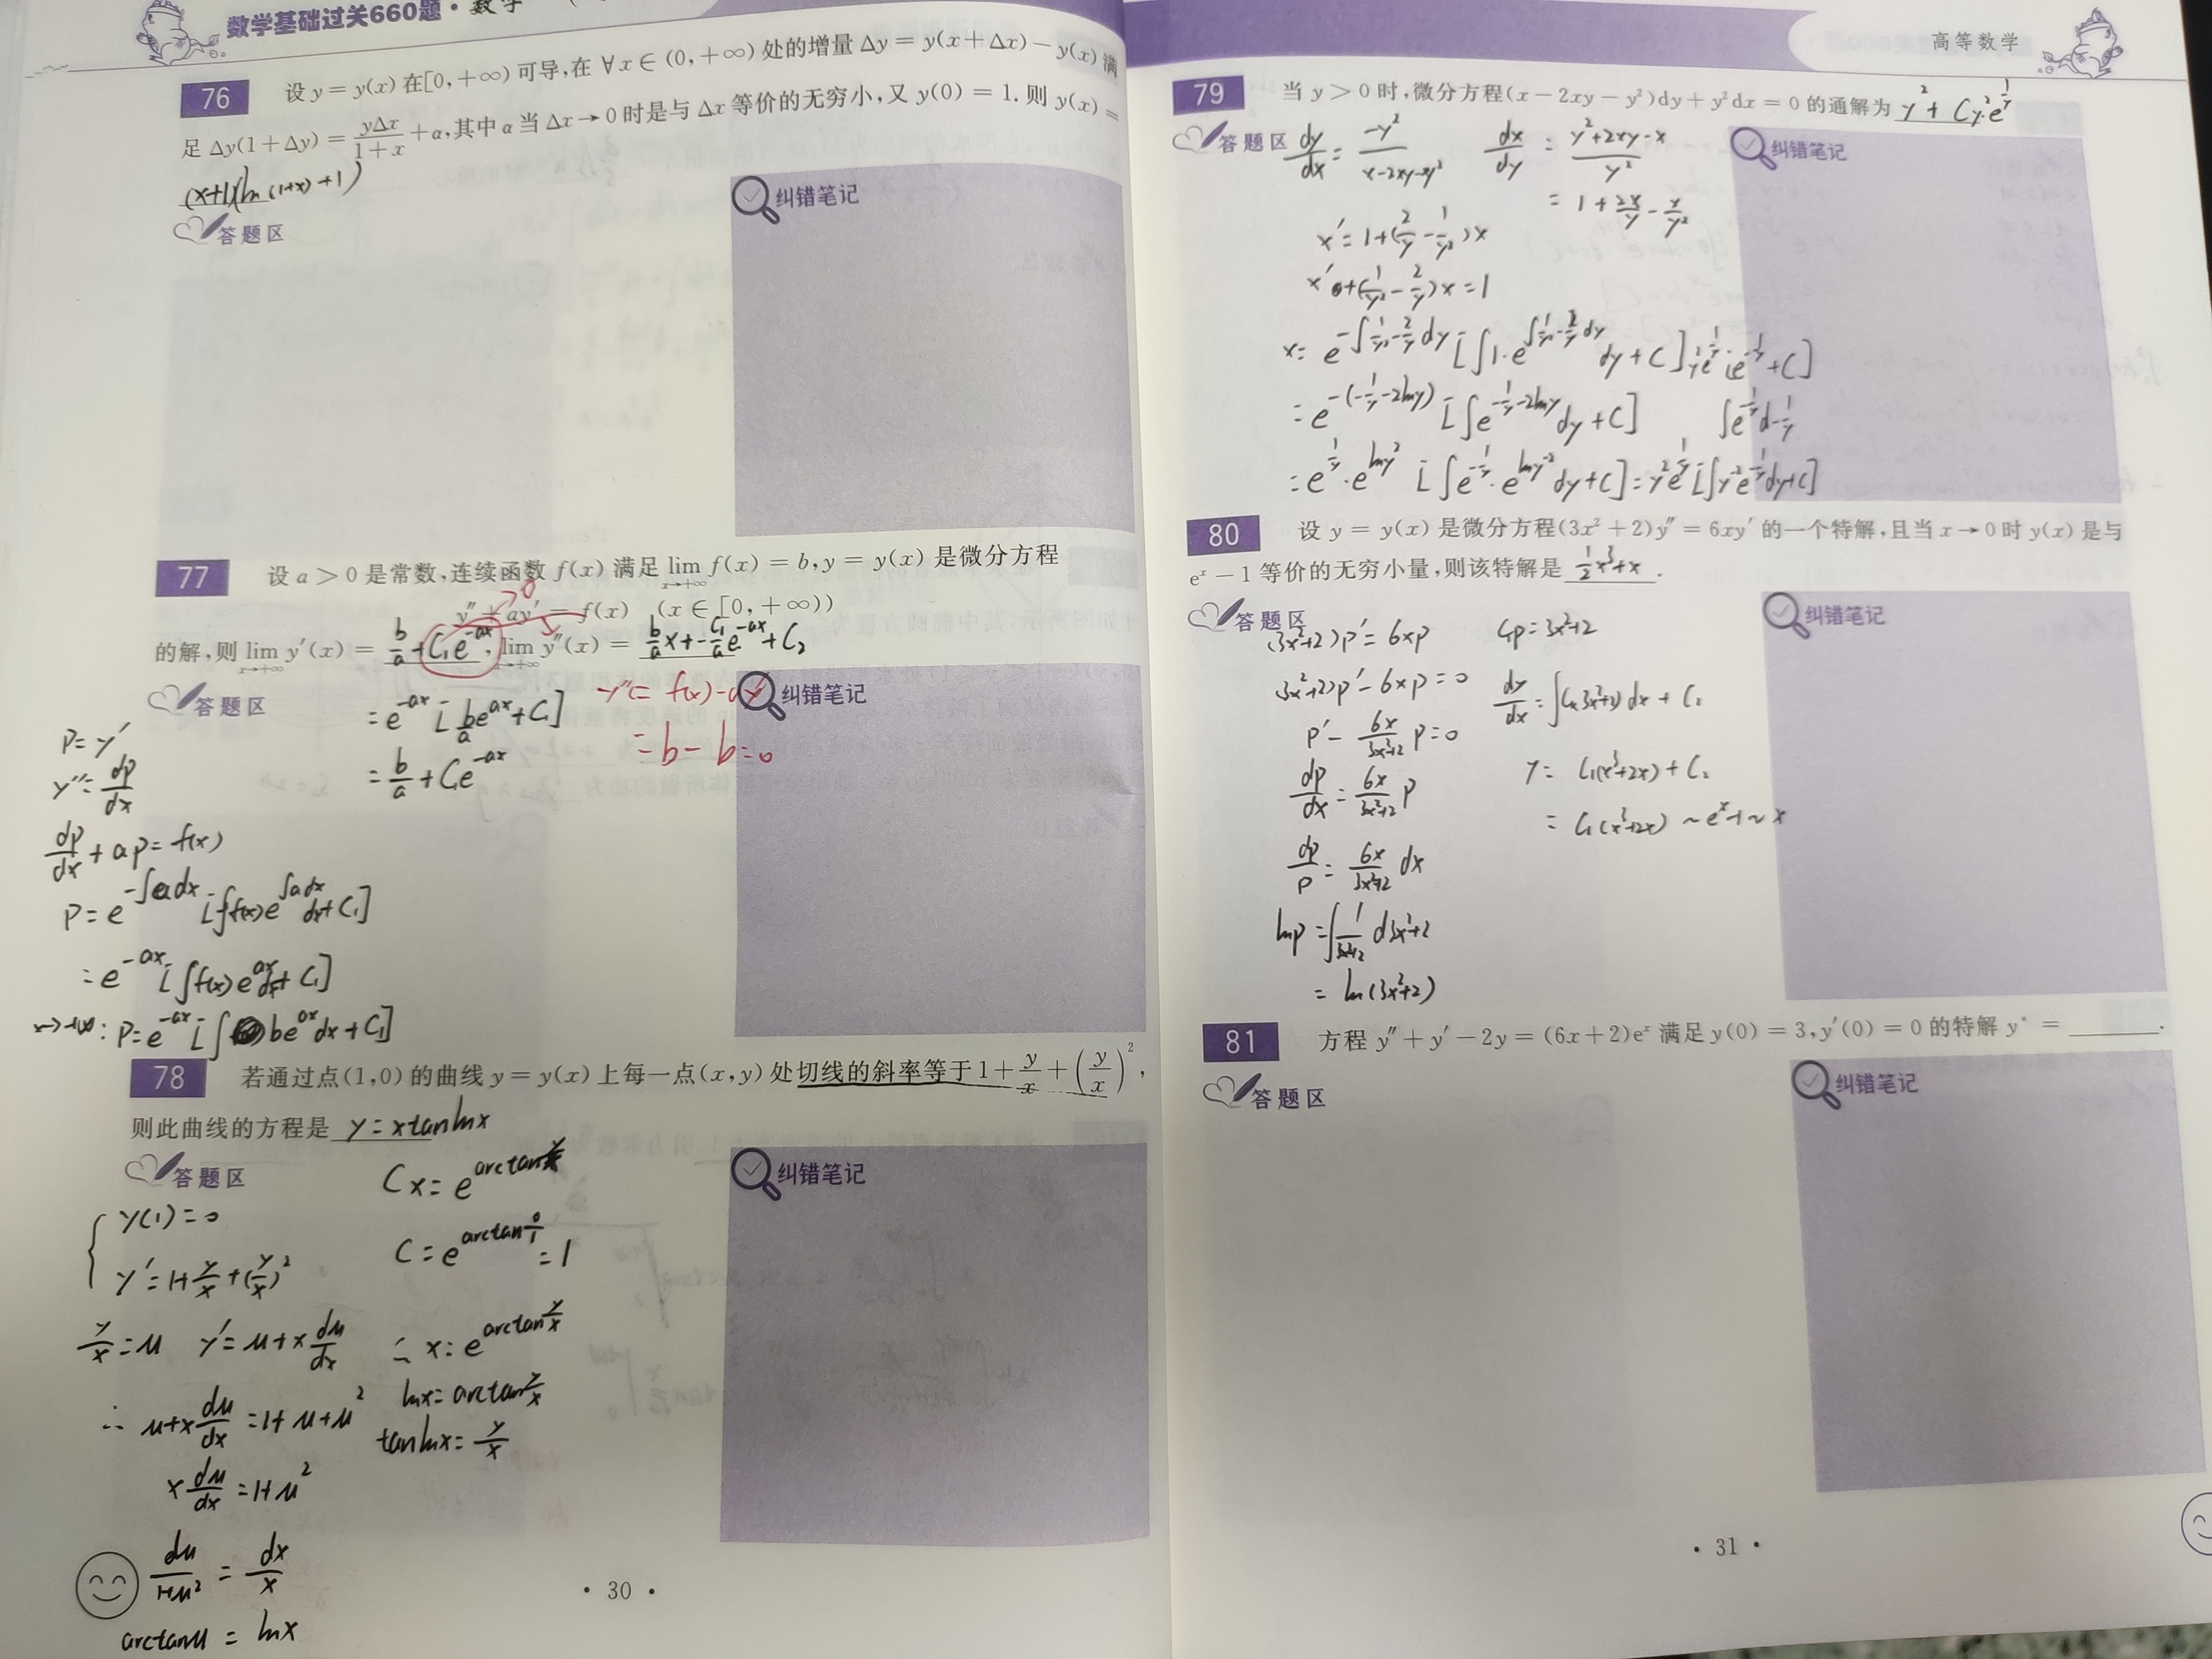 数学基础过关660题·数学
76 设 y = y(x) 在[0,+∞)可导,在 ∀x∈(0,+∞)处的增量 Δy = y(x+Δx) − y(x) 满
足 Δy(1+Δy) = yΔx/(1+x) + α,其中 α 当 Δx→0 时是与 Δx 等价的无穷小,又 y(0) = 1. 则 y(x) =
(x+1)(ln(1+x)+1)
答题区
纠错笔记
77 设 a > 0 是常数,连续函数 f(x) 满足 lim x→+∞ f(x) = b, y = y(x) 是微分方程
y″ + ay′ = f(x) (x∈[0,+∞))
的解,则 lim x→+∞ y′(x) = b/a + C₁e^-ax, lim x→+∞ y″(x) = b/a x + -C₁/a e^-ax + C₂
答题区
纠错笔记
P = y′
y″ = dp/dx
dp/dx + ap = f(x)
P = e^-∫adx [∫f(x)e^∫adx dx + C₁]
= e^-ax [∫f(x)e^ax dx + C₁]
x→+∞: P = e^-ax [∫be^ax dx + C₁]
= e^-ax [b/a e^ax + C₁]
= b/a + C₁e^-ax
= b − b = 0
78 若通过点(1,0)的曲线 y = y(x) 上每一点(x,y)处切线的斜率等于 1 + y/x + (y/x)²,
则此曲线的方程是 y = xtanlnx
答题区
纠错笔记
{ y(1) = 0
y′ = 1+ y/x + (y/x)²
y/x = u y′ = u + x du/dx
∴ u + x du/dx = 1 + u + u²
x du/dx = 1 + u²
du/1+u² = dx/x
arctanu = lnx
Cx = e^arctan y/x
C = e^arctan 0/1 = 1
∴ x = e^arctan y/x
lnx = arctan y/x
tanlnx = y/x
· 30 ·
高等数学
79 当 y > 0 时,微分方程(x − 2xy − y²)dy + y²dx = 0 的通解为 y² + Cy²·e^1/y
答题区
纠错笔记
dy/dx = -y²/x-2xy-y²
dx/dy = y²+2xy-x/y²
= 1 + 2x/y - x/y²
x′ = 1+(2/y - 1/y²)x
x′ + (1/y² - 2/y)x = 1
x = e^-∫1/y²-2/y dy [∫1·e^∫1/y²-2/y dy dy + C]
= e^-(-1/y-2lny) [∫e^-1/y-2lny dy + C]
= e^1/y·e^lny² [∫e^-1/y·e^lny^-2 dy + C] = y²e^1/y [∫y^-2 e^-1/y dy + C]
∫e^-1/y d-1/y
80 设 y = y(x) 是微分方程(3x² + 2)y″ = 6xy′ 的一个特解,且当 x→0 时 y(x) 是与
eˣ − 1 等价的无穷小量,则该特解是 1/2 x³ + x .
答题区
纠错笔记
(3x²+2)p′ = 6xp
(3x²+2)p′ - 6xp = 0
p′ - 6x/3x²+2 p = 0
dp/dx = 6x/3x²+2 p
dp/p = 6x/3x²+2 dx
lnp = ∫1/3x²+2 d3x²+2
= ln(3x²+2)
C₁p = 3x²+2
dy/dx = ∫C₁(3x²+2)dx + C₂
y = C₁(x³+2x) + C₂
= C₁(x³+2x) ~ eˣ-1 ~ x
81 方程 y″ + y′ − 2y = (6x + 2)eˣ 满足 y(0) = 3, y′(0) = 0 的特解 y* = ______.
答题区
纠错笔记
· 31 ·